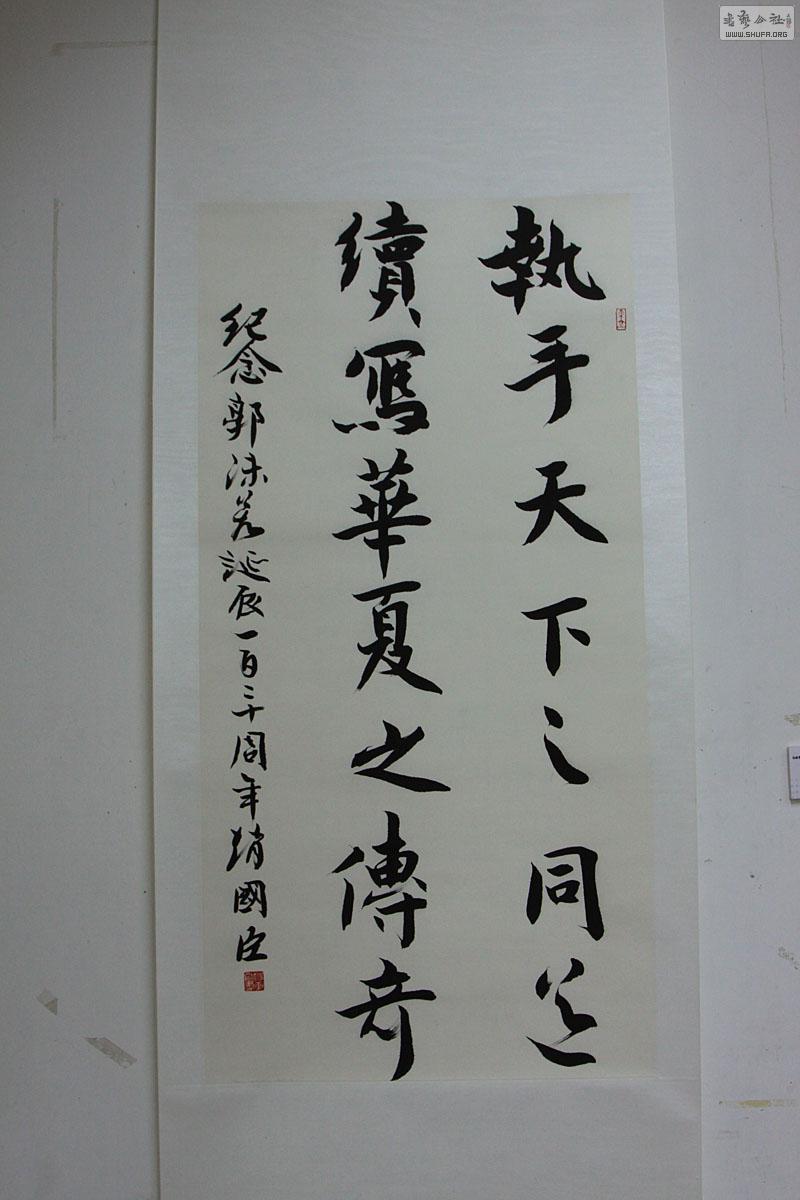 執手天下之同道
續寫華夏之傳奇
紀念郭沫若誕辰一百二十周年趙國臣
書藝公社
WWW.SHUFA.ORG